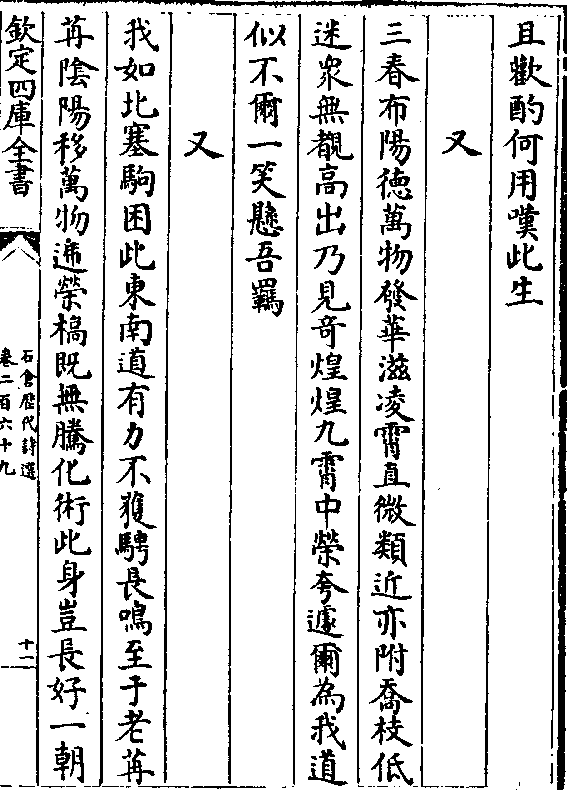 且歡酌何用嘆此生
又
三春布陽徳萬物發華滋凌霄直微類近亦附喬枝低
迷衆無覩高出乃見竒煌煌九霄中榮夸遽爾為我道
似不爾一笑懸吾羈
又
我如北塞駒困此東南道有力不獲騁長鳴至于老苒
苒陰陽移萬物遞榮槁既無騰化術此身豈長好一朝
欽定四庫全書
石倉歴代詩選
卷二百六十九
十一